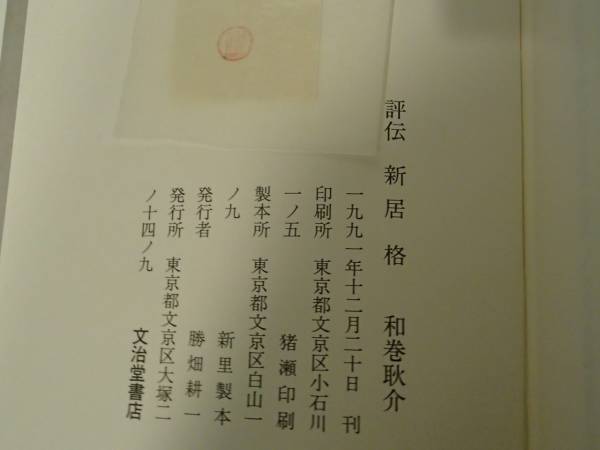 評伝 新居 格 和巻耿介
一九九一年十二月二十日 刊
印刷所 東京都文京区小石川
一ノ五 猪瀬印刷
製本所 東京都文京区白山一
ノ九 新里製本
発行者 勝畑耕一
発行所 東京都文京区大塚二
ノ十四ノ九 文治堂書店